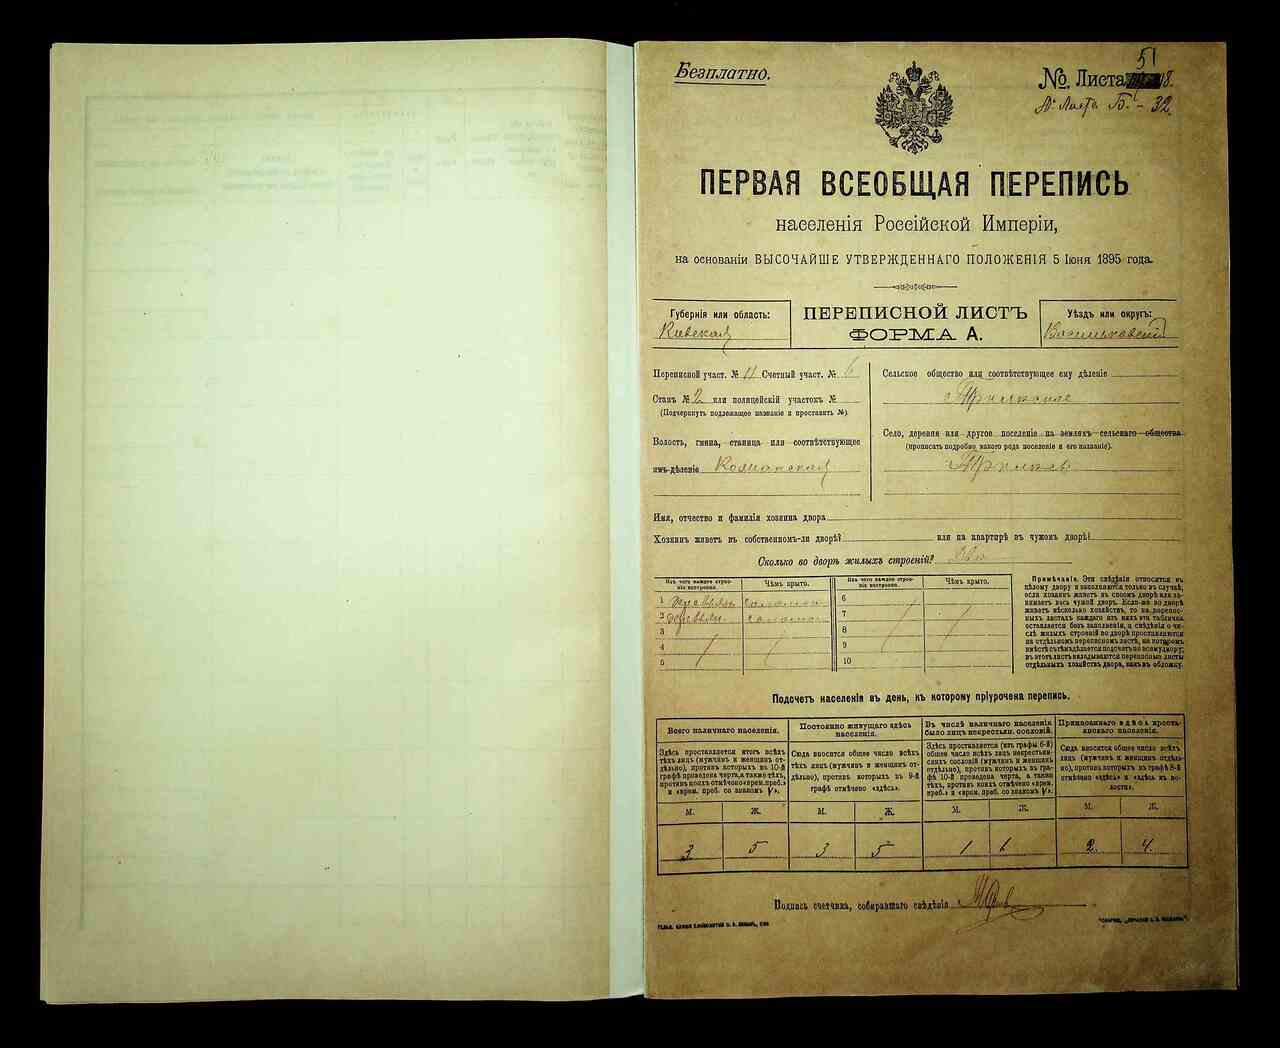 Безплатно.
№. Листа 51 18.
№ Листа Б. - 32.
ПЕРВАЯ ВСЕОБЩАЯ ПЕРЕПИСЬ
населенія Россійской Имперіи,
на основаніи ВЫСОЧАЙШЕ УТВЕРЖДЕННАГО ПОЛОЖЕНІЯ 5 Іюня 1895 года.
Губернія или область:
Киевская
ПЕРЕПИСНОЙ ЛИСТЪ
ФОРМА А.
Уѣздъ или округъ:
Васильковскій
Переписной участ. № 11 Счетный участ. № 6
Станъ № 2 или полицейскій участокъ №
(Подчеркнуть подлежащее названіе и проставить №).
Волость, гмина, станица или соотвѣтствующее
имъ дѣленіе
Сельское общество или соотвѣтствующее ему дѣленіе
Село, деревня или другое поселеніе на земляхъ сельскаго общества
(прописать подробно какого рода поселеніе и его названіе).
Имя, отчество и фамилія хозяина двора
Хозяинъ живетъ въ собственномъ-ли дворѣ? или на квартирѣ въ чужомъ дворѣ?
Сколько во дворѣ жилыхъ строеній? Два
Изъ чего каждое строеніе построено. Чѣмъ крыто. Изъ чего каждое строеніе построено. Чѣмъ крыто.
1 деревян. соломой 6
2 деревян. соломой 7
3 8
4 9
5 10
Примѣчаніе. Эти свѣдѣнія относятся къ
цѣлому двору и заполняются только въ случаѣ,
если хозяинъ живетъ въ своемъ дворѣ или занимаетъ
весь чужой дворъ. Если-же во дворѣ
живетъ нѣсколько хозяйствъ, то на переписныхъ
листахъ каждаго изъ нихъ эта табличка
оставляется безъ заполненія, а свѣдѣнія о числѣ
жилыхъ строеній во дворѣ проставляются
на отдѣльномъ переписномъ листѣ, на которомъ
вмѣстѣ съ тѣмъ дѣлается подсчетъ по всему двору;
въ этотъ листъ вкладываются переписные листы
отдѣльныхъ хозяйствъ двора, какъ въ обложку.
Подсчетъ населенія въ день, къ которому пріурочена перепись.
Всего наличнаго населенія.
Здѣсь проставляется итогъ всѣхъ
тѣхъ лицъ (мужчинъ и женщинъ отдѣльно),
противъ которыхъ въ 10-й
графѣ проведена черта, а также тѣхъ,
противъ коихъ отмѣчено «врем. преб.»
и «врем. преб. со знакомъ V».
Постоянно живущаго здѣсь
населенія.
Сюда вносится общее число всѣхъ
тѣхъ лицъ (мужчинъ и женщинъ отдѣльно),
противъ которыхъ въ 9-й
графѣ отмѣчено «здѣсь».
Въ числѣ наличнаго населенія
было лицъ некрестьян. сословій.
Здѣсь проставляется (изъ графы 6-й)
общее число всѣхъ лицъ некрестьянскихъ
сословій (мужчинъ и женщинъ
отдѣльно), противъ которыхъ въ графѣ
10-й проведена черта, а также
тѣхъ, противъ коихъ отмѣчено «врем.
преб.» и «врем. преб. со знакомъ V».
Приписаннаго здѣсь крестьянскаго
населенія.
Сюда вносится общее число всѣхъ
лицъ (мужчинъ и женщинъ отдѣльно),
противъ которыхъ въ графѣ 8-й
отмѣчено «здѣсь» и «здѣсь къ волости».
М. Ж. М. Ж. М. Ж. М. Ж.
3 5 3 5 1 1 2 4
Подпись счетчика, собиравшаго свѣдѣнія